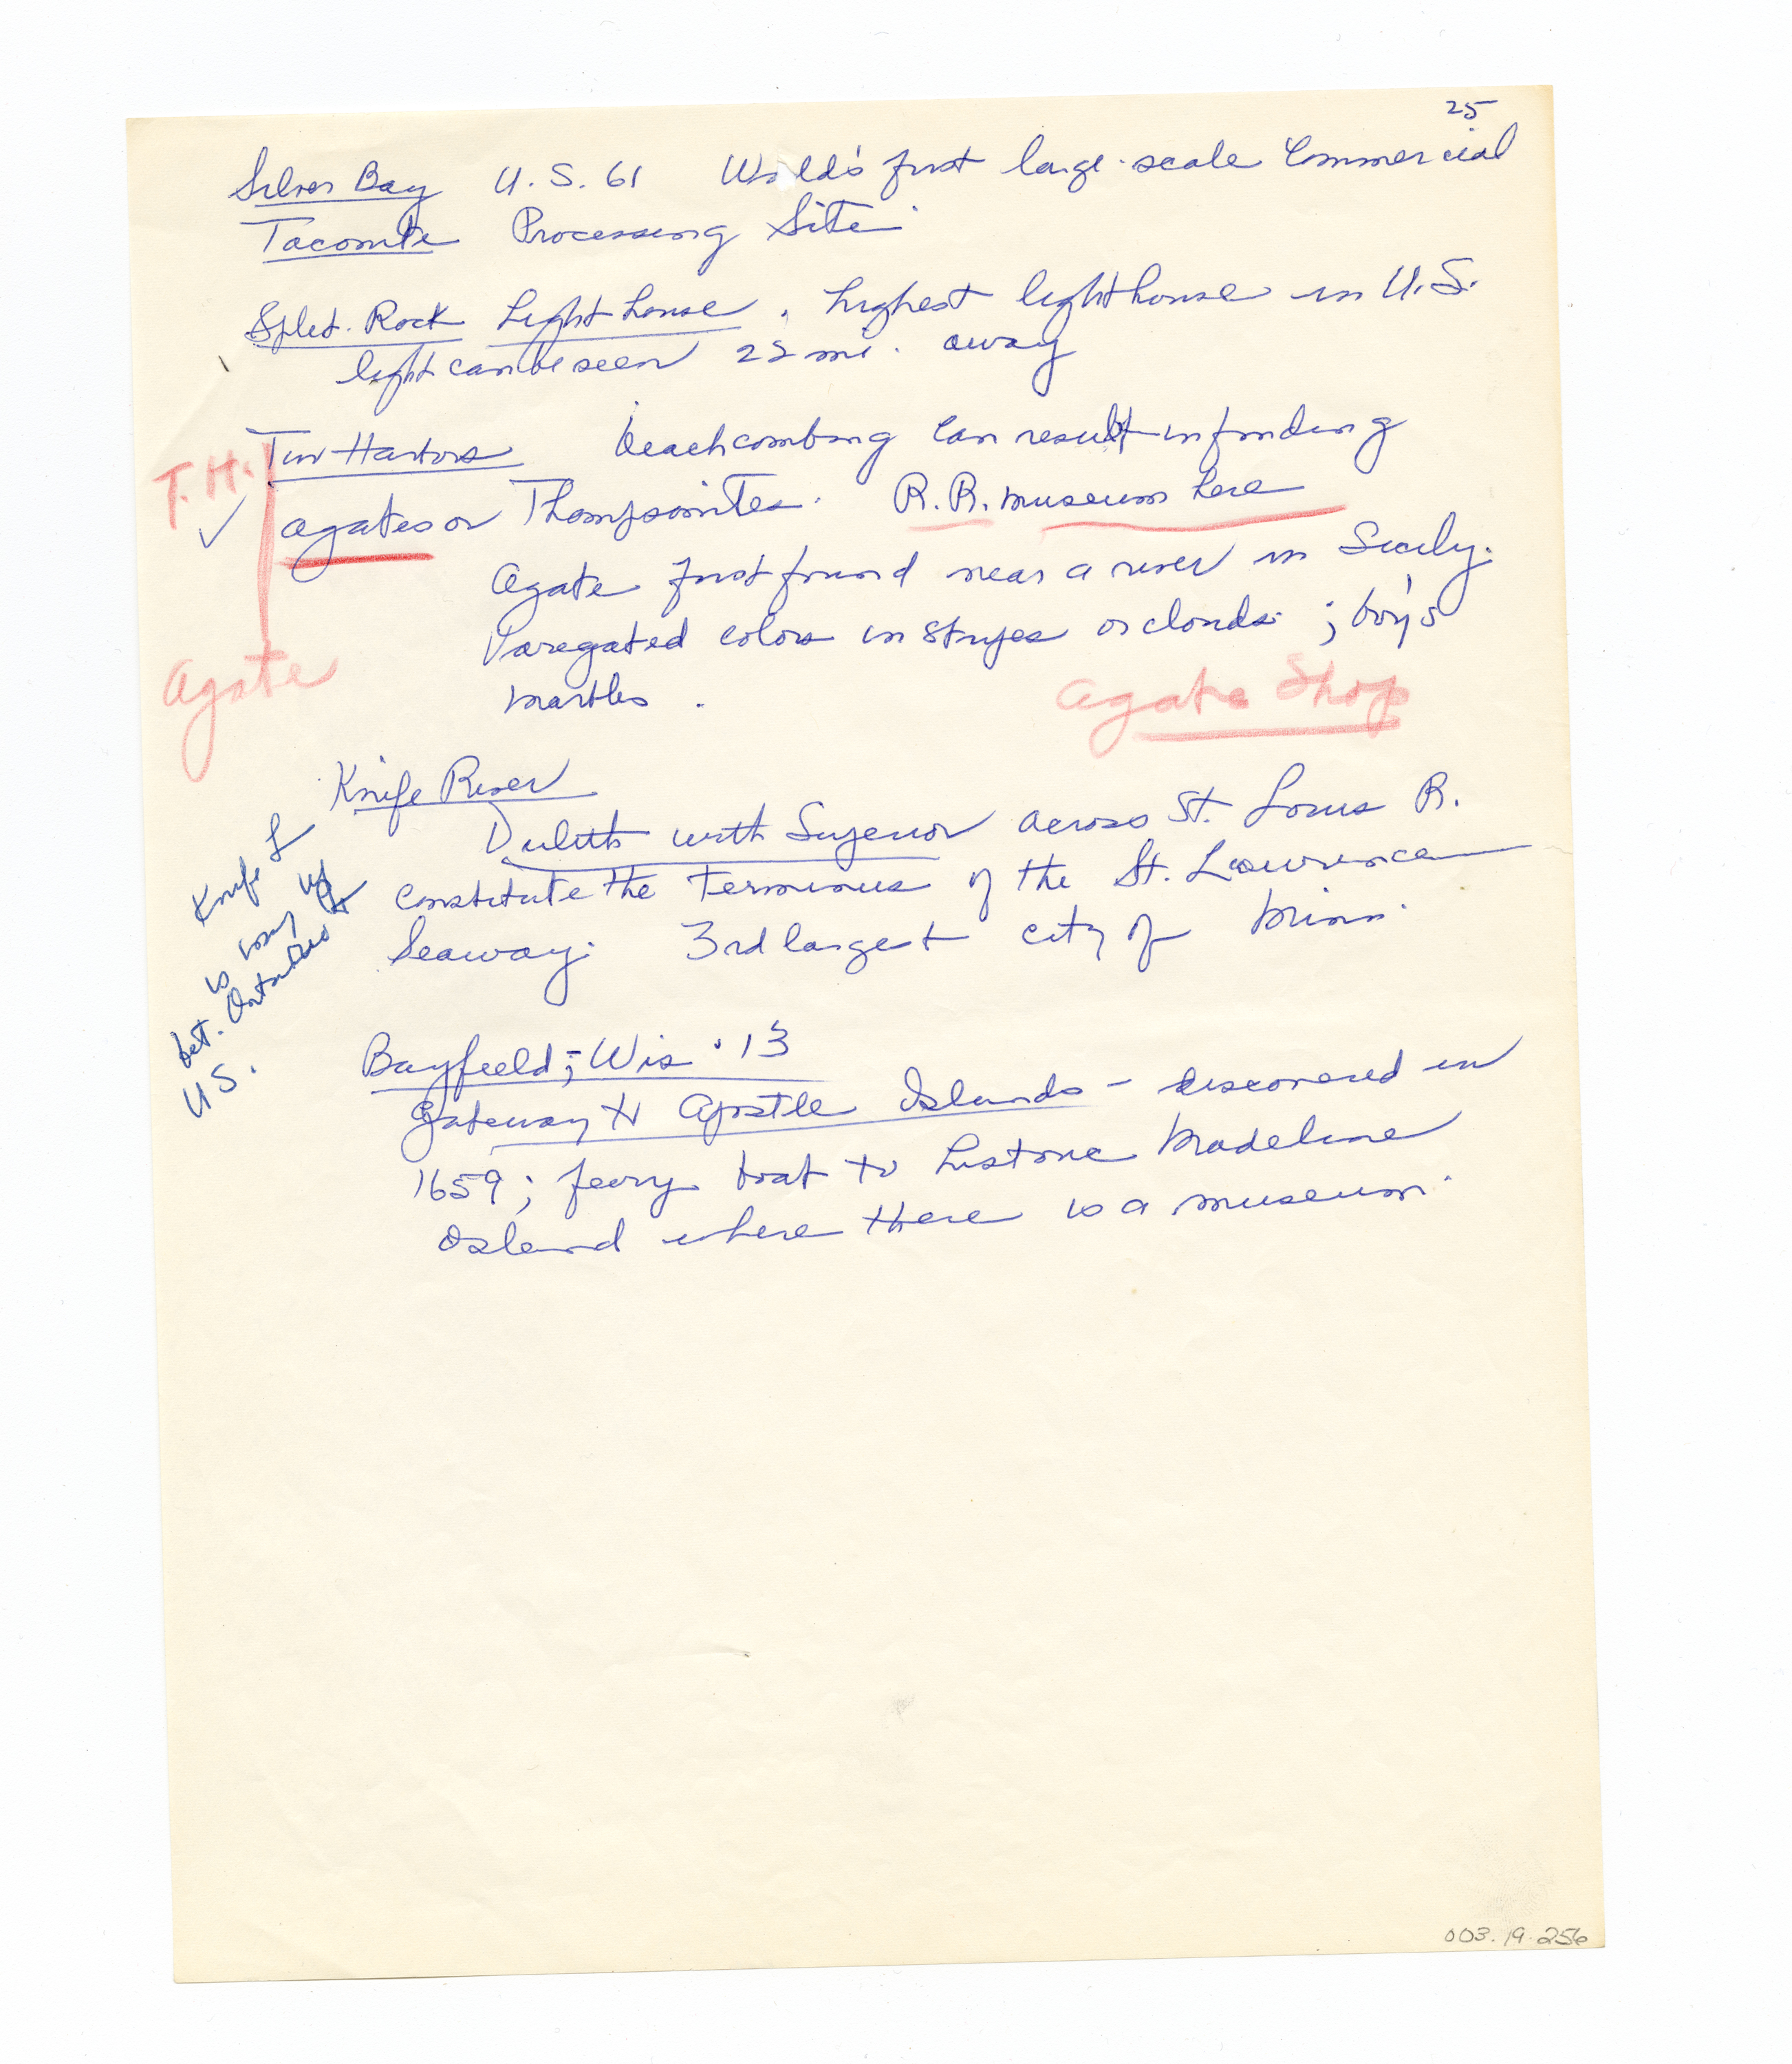 25
Silver Bay U.S. 61 World's first large-scale Commercial
Taconite Processing Site.
Split Rock Light house. highest lighthouse in U.S.
light can be seen 22 mi. away
T.H.
Two Harbors beachcombing can result in finding
agates or Thompsonites. R.R. museum here
Agate first found near a river in Sicily.
Varegated colors in stripes or clouds; boy's
marbles.
Agate
Agate Shop
Knife River
Duluth with Superior across St. Louis R.
constitute the terminus of the St. Lawrence
Seaway. 3rd largest city of Minn.
Knife L
is way up
bet. Ontario &
U S.
Bayfield, Wis. 13
gateway to Apostle Islands - discovered in
1659; ferry boat to historic Madeline
Island where there is a museum.
003.19.256